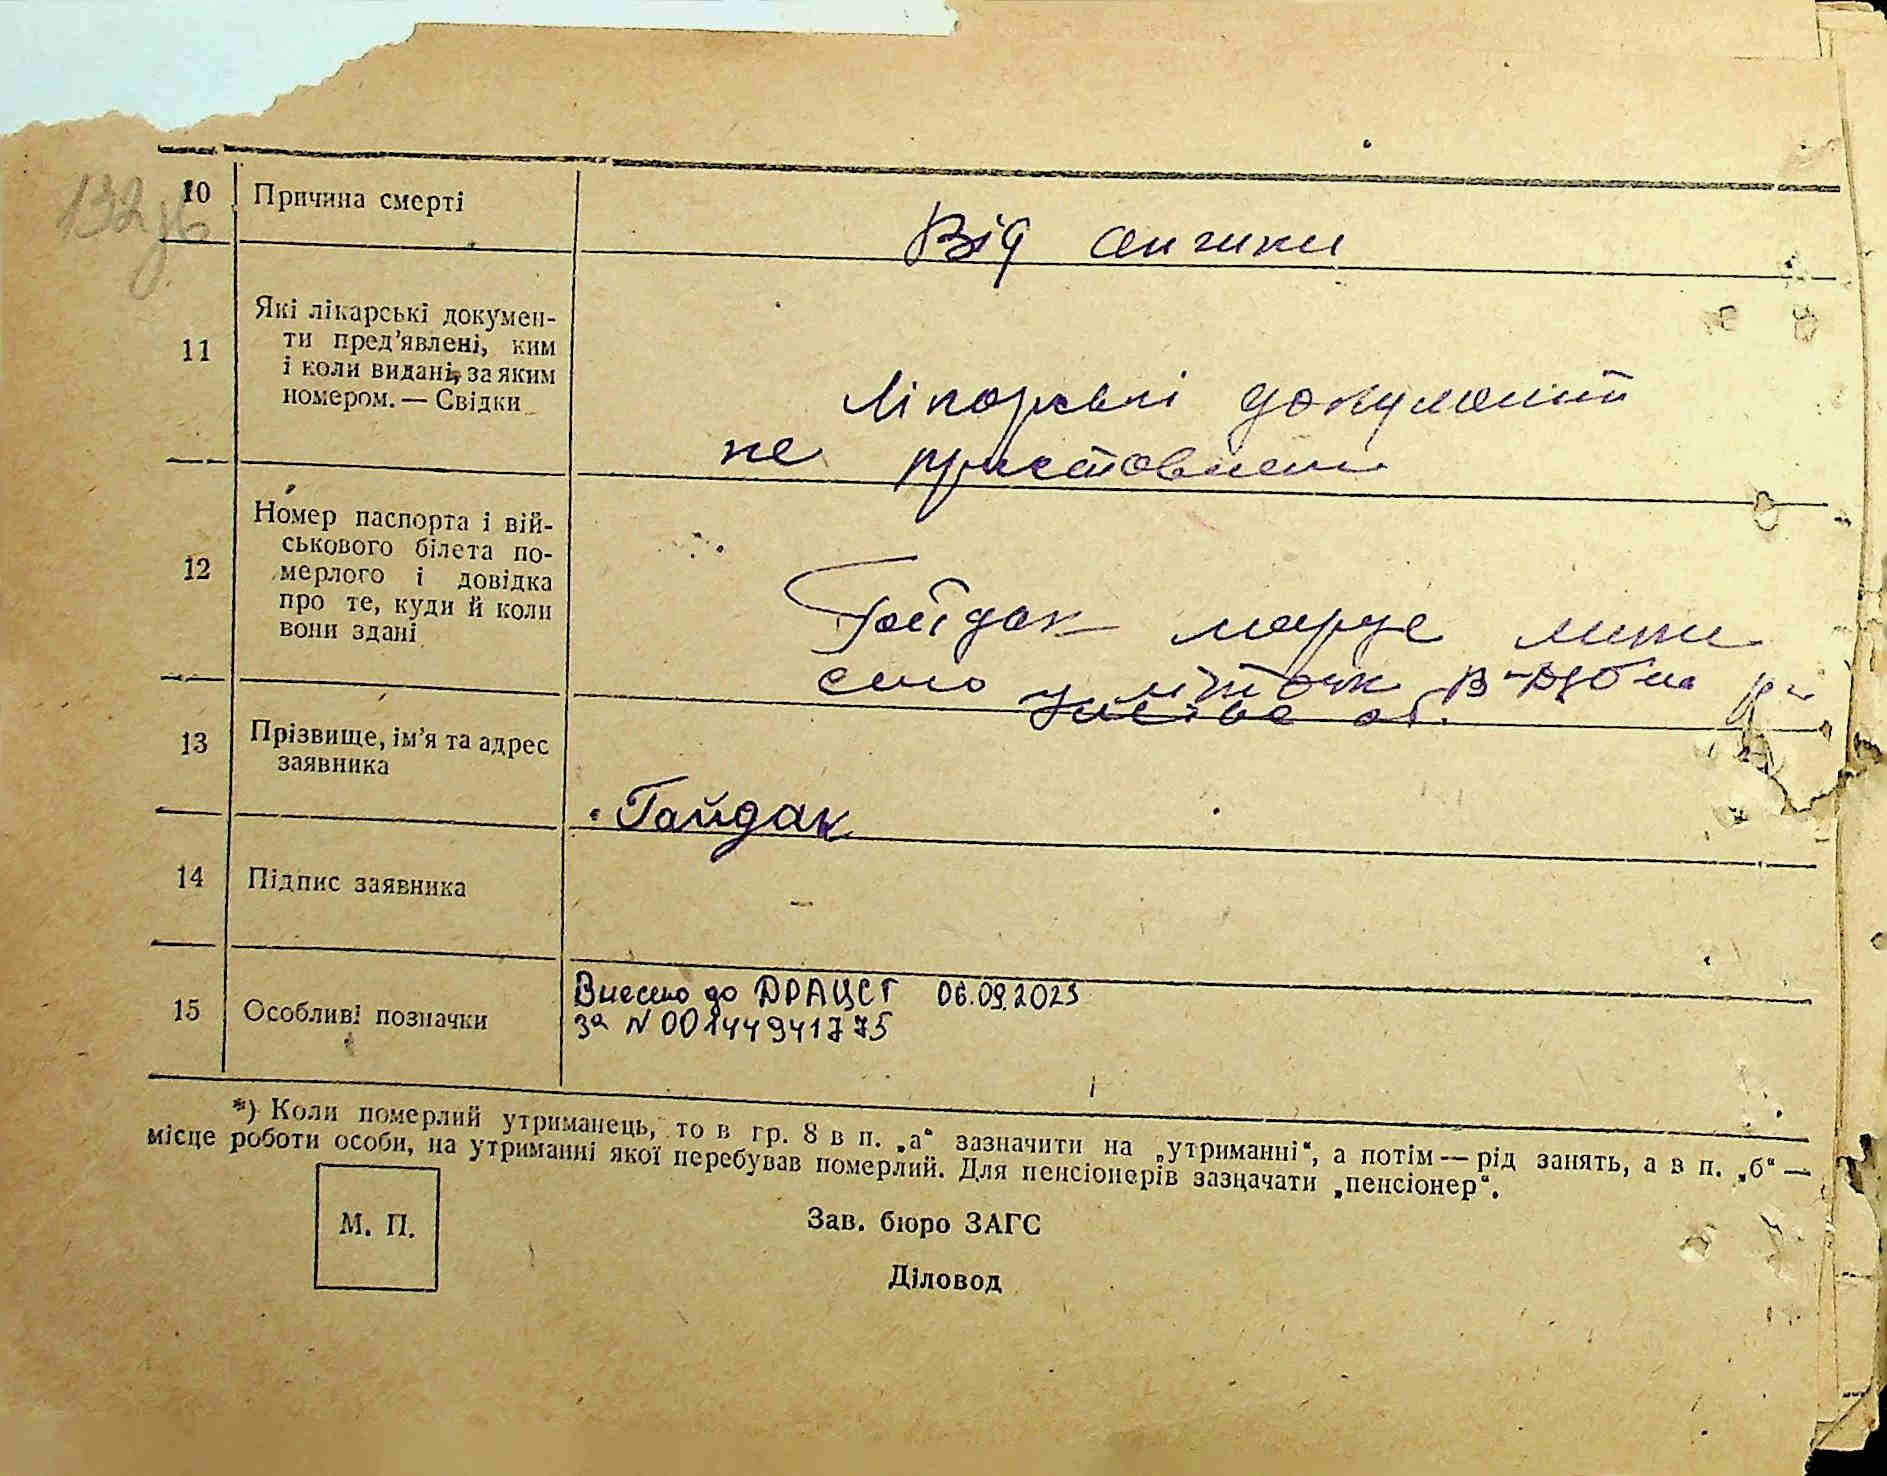 132
10 Причина смерті Від ангики
11 Які лікарські докумен-
ти пред’явлені, ким
і коли видані, за яким
номером. — Свідки
Лікорські документи
не приставлени
12 Номер паспорта і вій-
ськового білета по-
мерлого і довідка
про те, куди й коли
вони здані
Гайдак марце
село В-Дубна
13 Прізвище, ім’я та адрес
заявника
Гайдак
14 Підпис заявника
15 Особливі позначки
Внесено до ДРАЦСГ 06.09.2023
за N 00144941775
*) Коли померлий утриманець, то в гр. 8 в п. „а“ зазначити на „утриманні“, а потім — рід занять, а в п. „б“ —
місце роботи особи, на утриманні якої перебував померлий. Для пенсіонерів зазначати „пенсіонер“.
М. П.
Зав. бюро ЗАГС
Діловод